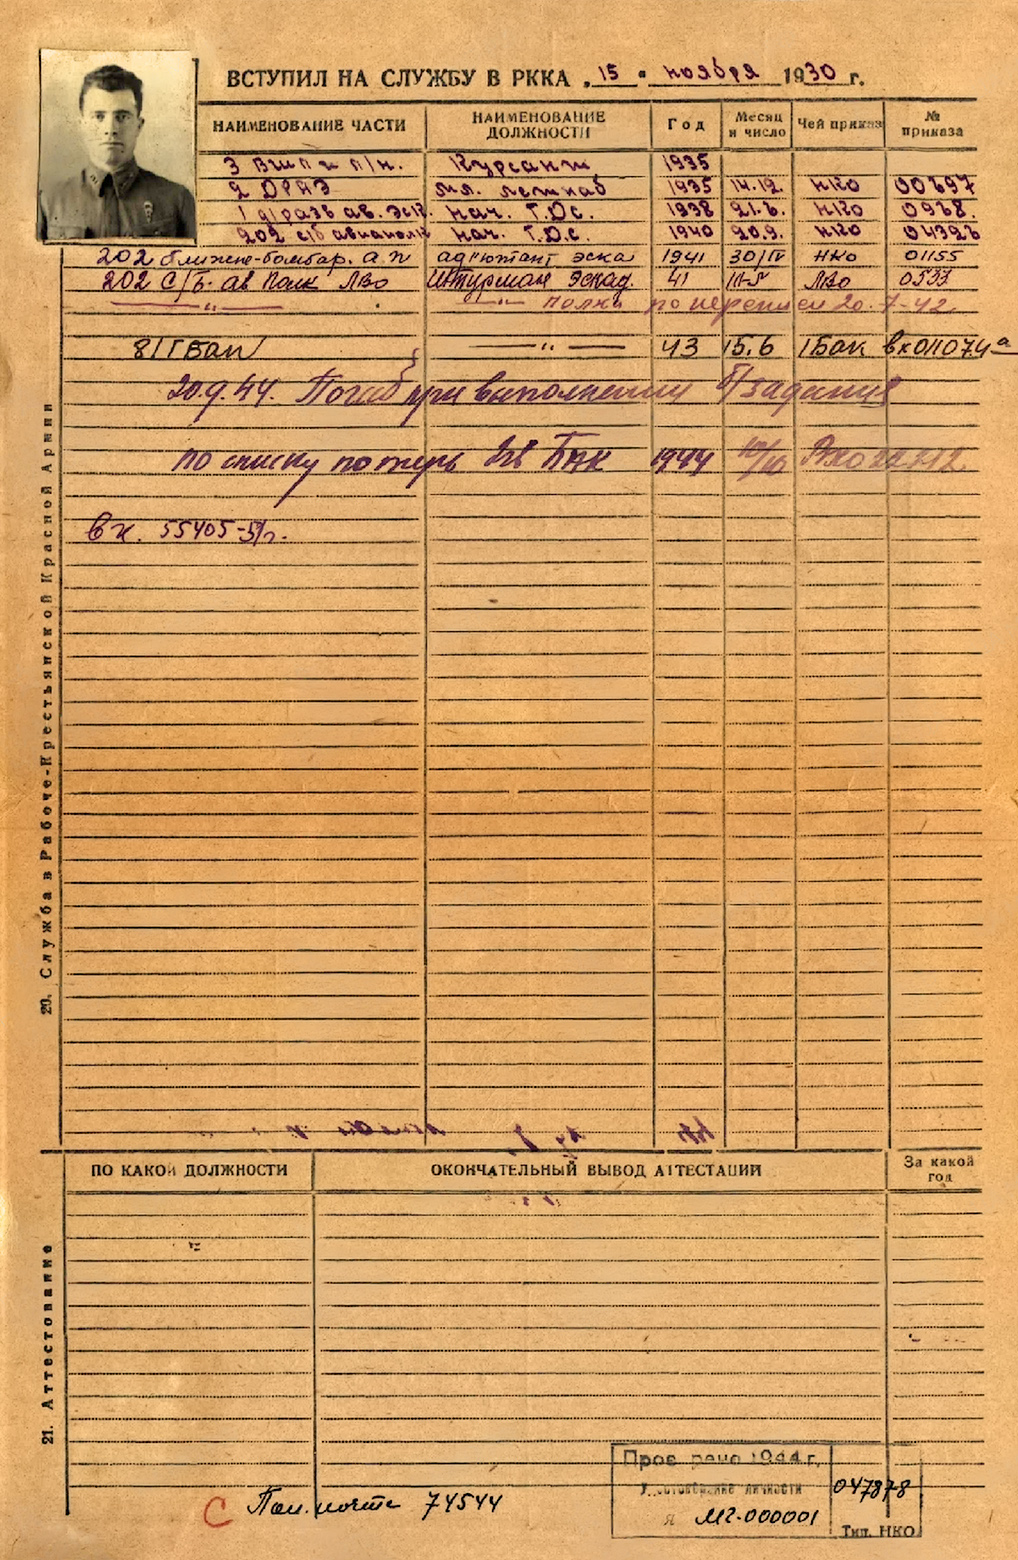 ВСТУПИЛ НА СЛУЖБУ В РККА „15“ ноября 1930 г.
НАИМЕНОВАНИЕ ЧАСТИ НАИМЕНОВАНИЕ ДОЛЖНОСТИ Год Месяц и число Чей приказ № приказа
3 п/н. Курсант 1935
2 ДРАЭ мл. летнаб 1935 14.12. НКО 00697
1 д/разв ав. эск. нач. Т.О.с. 1938 21.6. НКО 0968.
202 с/б авиаполк нач. Т.О.с. 1940 20.9. НКО 04326
202 ближне-бомбар. а.п адъютант эска 1941 30/IV НКО 01155
202 С/Б. ав Полк ЛВо Штурман Эскад. 41 III-5 ЛВо 0533
— " — — " — полка по переписи 20.7-42
81 ГБап — " — 43 15.6 1Бак вх011074а
20.9.44. Погиб при выполнении б/задания
по списку потерь 2гв БАК 1944 10/10
вх. 55405-51г.
20. Служба в Рабоче-Крестьянской Красной Армии
ПО КАКОЙ ДОЛЖНОСТИ ОКОНЧАТЕЛЬНЫЙ ВЫВОД АТТЕСТАЦИИ За какой год
21. Аттестование
Пров рено 1944 г.
Удостоверение личности 047878
я МГ-000001
Тип. НКО
С Пол.почта 74544